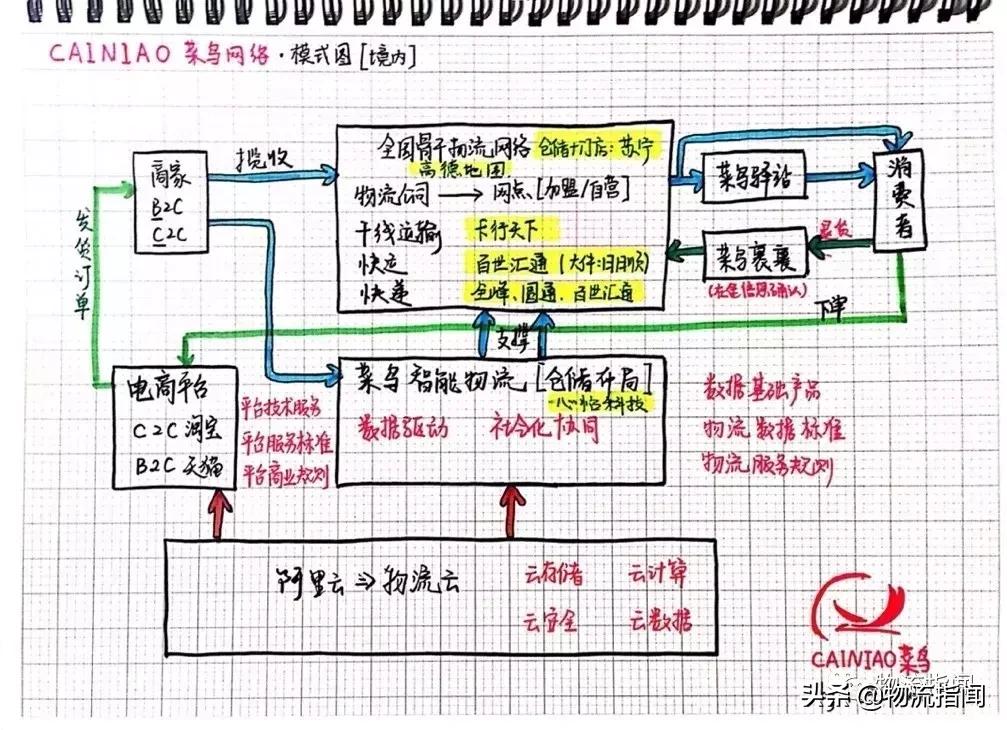 CAINIAO 菜鸟网络·模式图[境内]
商家
B2C
C2C
揽收
全国骨干物流网络 仓储+门店:苏宁
高德地图
物流公司 → 网点[加盟/自营]
干线运输 卡行天下
快运 百世汇通(大件:日日顺)
快递 全峰、圆通、百世汇通
菜鸟驿站
消费者
退货
菜鸟裹裹
下单
发货订单
支撑
电商平台
C2C 淘宝
B2C 天猫
平台技术服务
平台服务标准
平台商业规则
菜鸟智能物流[仓储布局]
心怡科技
数据驱动 社会化协同
数据基础产品
物流数据标准
物流服务规则
阿里云⇒物流云
云存储 云计算
云安全 云数据
CAINIAO菜鸟
物流指闻
头条 @物流指闻